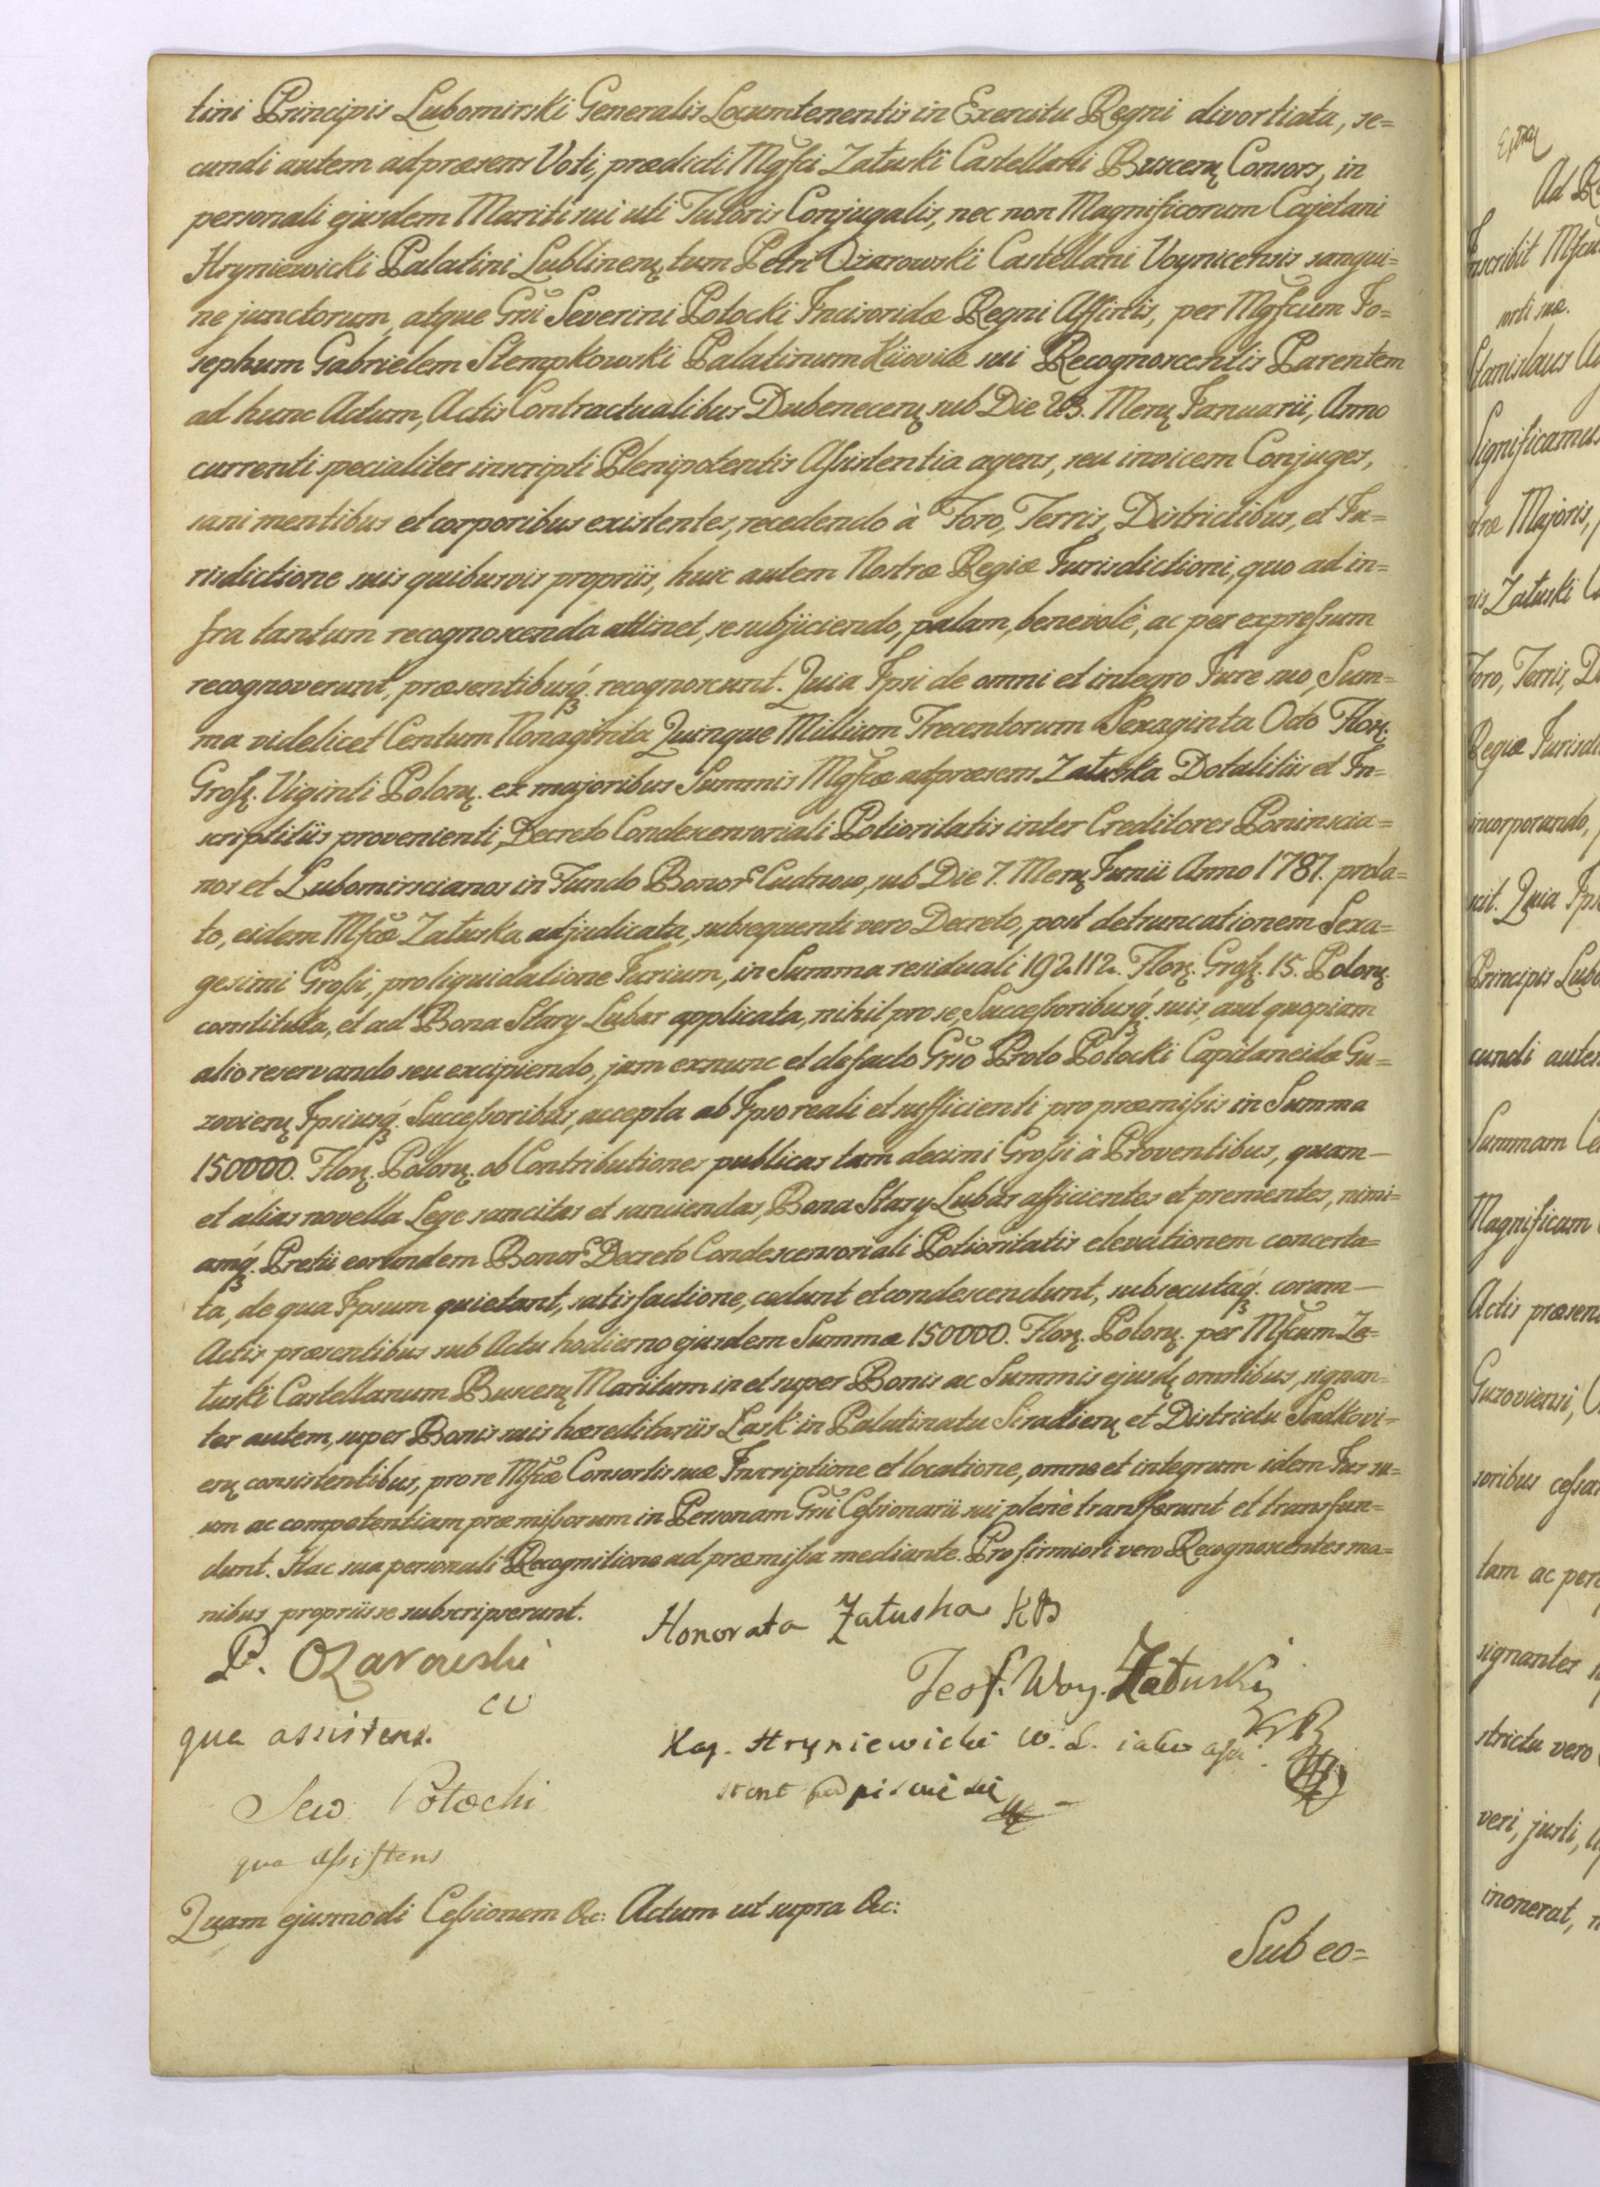 tini Principis Lubomirski Generalis Locumtenentis in Exercitu Regni divortiata, se=
cundi autem ad præsens Voti, prædicti Mgfci Załuski Castellani Buscenʒ Consors, in
personali ejusdem Mariti sui uti Tutoris Conjugalis, nec non Magnificorum Cajetani
Hryniewicki Palatini Lublinenʒ, tum Petri Ożarowski Castellani Voynicensis sangui=
ne junctorum, atque Gñi Severini Potocki Incisoridæ Regni Affinis, per Mgfcum Jo=
sephum Gabrielem Stempkowski Palatinum Kijoviæ sui Recognoscentis Parentem
ad hunc Actum, Actis Contractualibus Dubenecenʒ sub Die 23. Menʒ Januarii, Anno
currenti specialiter inscripti Plenipotentis Assistentia agens, seu invicem Conjuges,
sani mentibus et corporibus existentes, recedendo à Foro, Terris, Districtibus, et Ju=
risdictione suis quibusvis propriis, huic autem Nostræ Regiæ Jurisdictioni, quo ad in=
fra tantum recognoscenda attinet, se subjiciendo, palam, benevolè, ac per expressum
recognoverunt, præsentibusq́ʒ recognoscunt. Quia Ipsi de omni et integro Jure suo, Sum=
ma videlicet Centum Nonaginta Quinque Millium Trecentorum Sexaginta Octo Florʒ.
Grossʒ. Viginti Polonʒ. ex majoribus Summis Mgfcæ ad præsens Załuska Dotalitiis et In=
scriptitiis provenienti, Decreto Condescensoriali Potioritatis inter Creditores Poninscia=
nos et Lubomirscianos in Fundo Bonor̃ Cudnow, sub Die 7. Menʒ Junii Anno 1787. prola=
to, eidem Mfcæ Załuska adjudicata, subsequenti vero Decreto, post detruncationem Sexa=
gesimi Grossi, pro liquidatione Jurium, in Summa residuali 192112. Florʒ. Grossʒ. 15. Polonʒ
constituta, et ad Bona Stary Lubar applicata, nihil pro se, Successoribusq́ʒ suis, aut quopiam
alio reservando seu excipiendo, jam exnunc et defacto Gñso Proto Potocki Capitaneidæ Gu=
zovienʒ Ipsiusq́ʒ Successoribus, accepta ab Ipso reali et sufficienti pro præmissis in Summa
150000. Florʒ. Polonʒ. ob Contributiones publicas tam decimi Grossi à Proventibus, quam —
et alias novella Lege sancitas et sanciendas, Bona Stary Lubar afficientes et prementes, nimi=
amq́ʒ Pretii eorundem Bonor̃ Decreto Condescensoriali Potioritatis elevationem concerta=
ta, de qua Ipsum quietant, satisfactione, cedunt et condescendunt, subsecutaq́ʒ coram —
Actis præsentibus sub Actu hodierno ejusdem Summæ 150000. Florʒ. Polonʒ. per Mfcum Za=
łuski Castellanum Buscenʒ Maritum in et super Bonis ac Summis ejusdʒ omnibus, signan=
ter autem, super Bonis suis hæreditariis Łask in Palatinatu Siradienʒ et Districtu Szadkovi=
enʒ consistentibus, pro re Mfcæ Consortis suæ Inscriptione et locatione, omne et integrum idem Jus su=
um ac competentiam præmissorum in Personam Gñi Cessionarii sui plenè transferunt et transfun=
dunt. Hac sua personali Recognitione ad præmissa mediante. Pro firmiori vero Recognoscentes ma=
nibus propriis se subscripserunt.
Honorata Załuska KB
P. Ozarowski
CW
qua assistens.
Teof. Woy. Załuski
KB
Kaj. Hryniewicki W. L. iako assi
stent podpisuie się
Sew. Potocki
qua assistens
Quam ejusmodi Cessionem &c: Actum ut supra &c:
Sub eo=
Ad
Inscribit
Stanislaus
Significamus
Majoris,
Załuski
Foro, Terris,
incorporando,
Quia
Principis
cundi
Summam
Magnificam
Actis
Guzoviensi,
soribus
tam ac
signanter
strictu vero
veri, justi,
inonerat,